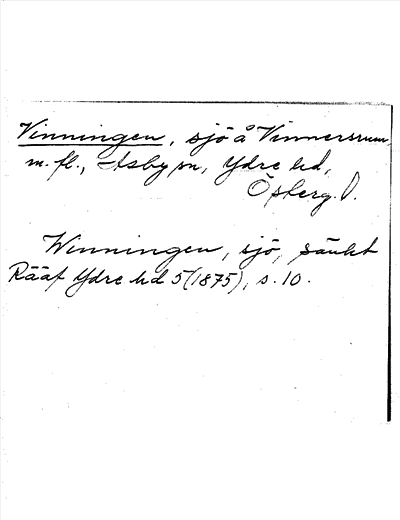 Vinningen, sjö å Vinnersrum
m. fl., Asby sn, Ydre hd,
Östergötl.
Winningen, sjö, sänkt
Rääf Ydre hd 5 (1875), s. 10.